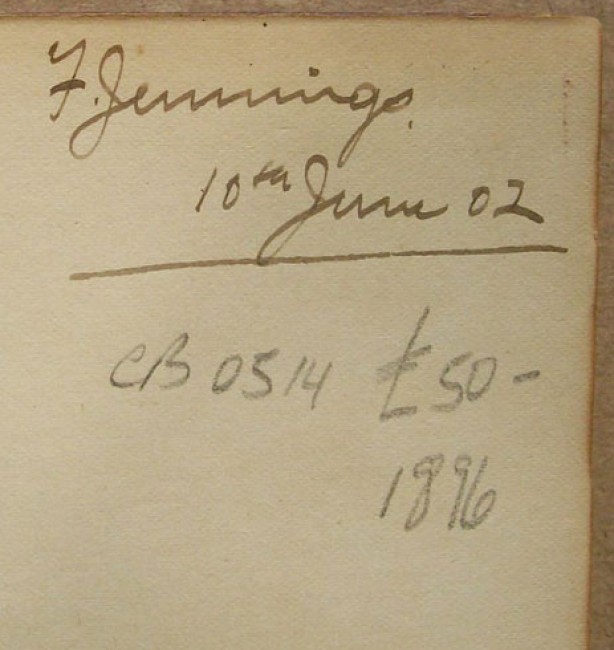 F. Jennings.
10th June 02
CB 0514 £50-
1896